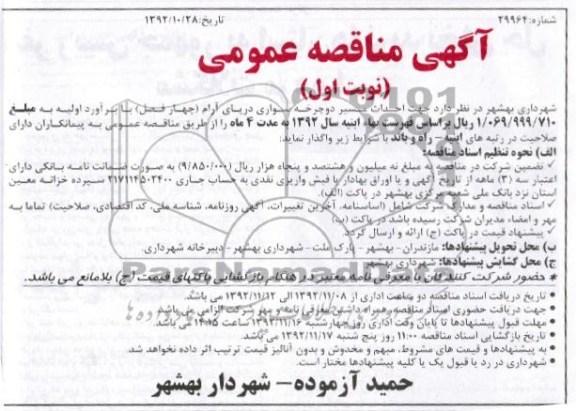 شماره: ۲۹۹۶۴
تاریخ: ۱۳۹۲/۱۰/۲۸
آگهی مناقصه عمومی
(نوبت اول)
شهرداری بهشهر در نظر دارد جهت احداث مسیر دوچرخه سواری دریای آرام (چهار فصل) با برآورد اولیه به مبلغ
۱/۰۶۹/۹۹۹/۷۱۰ ریال بر اساس فهرست بهاء ابنیه سال ۱۳۹۲ به مدت ۴ ماه را از طریق مناقصه عمومی به پیمانکاران دارای
صلاحیت در رتبه های ابنیه – راه و باند با شرایط زیر واگذار نماید:
الف) نحوه تنظیم اسناد مناقصه:
✓ تضمین شرکت در مناقصه به مبلغ نه میلیون و هشتصد و پنجاه هزار ریال (۹/۸۵۰/۰۰۰) به صورت ضمانت نامه بانکی دارای
اعتبار سه (۳) ماهه از تاریخ آگهی و یا اوراق بهادار یا فیش واریزی نقدی به حساب جاری ۲۱۷۱۱۴۵۰۲۴۰۰ سپرده خزانه معین
استان نزد بانک ملی شعبه مرکزی بهشهر در پاکت (الف).
✓ اسناد مناقصه و مدارک شرکت شامل (اساسنامه، آخرین تغییرات، آگهی روزنامه، شناسه ملی، کد اقتصادی، صلاحیت) تماما به
مهر و امضاء مدیران شرکت رسیده باشد در پاکت (ب)
✓ پیشنهاد قیمت در پاکت (ج) ارائه و ارسال گردد.
ب) محل تحویل پیشنهادها: مازندران - بهشهر - پارک ملت - شهرداری بهشهر - دبیرخانه شهرداری.
ج) محل گشایش پیشنهادها: شهرداری بهشهر
* حضور شرکت کنندگان با معرفی نامه معتبر در هنگام بازگشایی پاکتهای قیمت (ج) بلامانع می باشد.
• تاریخ دریافت اسناد مناقصه دو ساعت اداری از ۱۳۹۲/۱۱/۰۸ الی ۱۳۹۲/۱۱/۱۲ می باشد.
• جهت دریافت حضوری اسناد مناقصه همراه داشتن معرفی نامه و مهر شرکت الزامی می باشد
• مهلت قبول پیشنهادها تا پایان وقت اداری روز چهارشنبه ۱۳۹۲/۱۱/۱۶ ساعت ۱۴:۱۵ می باشد.
• تاریخ بازگشایی اسناد مناقصه ۱۱:۰۰ روز پنج شنبه ۱۳۹۲/۱۱/۱۷ می باشد.
• به پیشنهادها و قیمت های مشروط، مبهم و مخدوش و بدون آنالیز قیمت ترتیب اثر داده نخواهد شد.
• شهرداری در رد یا قبول یک یا کلیه پیشنهادها مختار است.
حمید آزموده – شهردار بهشهر